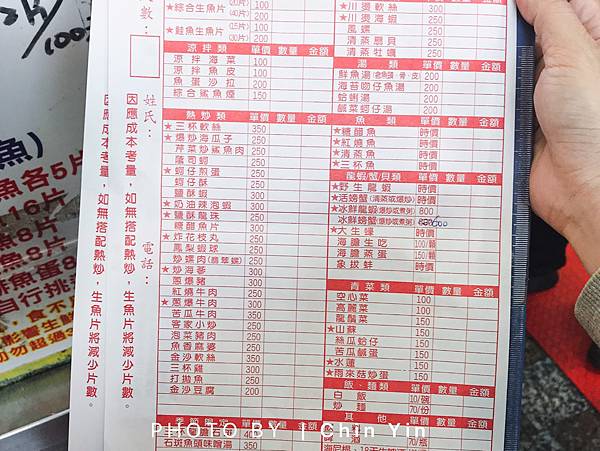 ★綜合生魚片(20片) 100
(40片) 200
★鮭魚生魚片(15片) 100
(30片) 200
涼拌類 單價 數量 金額
涼拌海菜 100
涼拌魚皮 100
魚蛋沙拉 200
綜合鯊魚煙 150
熱炒類 單價 數量 金額
★三杯軟絲 350
★爆炒海瓜子 250
芹菜炒鯊魚肉 250
蔭豉蚵 250
★蚵仔煎蛋 200
蚵仔酥 250
鹽酥蝦 300
★奶油辣泡蝦 300
★鹽酥龍珠 250
糖醋魚片 250
★炸花枝丸 250
鳳梨蝦球 250
炒螺肉(翡翠螺) 250
★炒海蔘 300
蔥爆豬 250
紅燒牛肉 300
★蔥爆牛肉 300
苦瓜牛肉 250
客家小炒 250
泡菜豬肉 250
魚香麻婆 250
金沙軟絲 350
三杯雞 300
打拋魚 250
金沙豆腐 200
石斑魚頭味噌湯
★川燙軟絲 300
★川燙海蝦
風螺
清蒸扇貝
清蒸牡蠣
湯類 單價 數量 金額
鮮魚湯(老魚頭、骨、皮) 200
海苔吻仔魚湯 200
蛤蜊湯 200
鹹菜蚵仔湯 200
魚類 單價 數量 金額
★糖醋魚 時價
★紅燒魚 時價
★清蒸魚 時價
★三杯魚 時價
龍蝦/蟹/貝類 單價 數量 金額
★野生龍蝦 時價
★活螃蟹(清蒸或爆炒) 時價
★冰鮮龍蝦(爆炒或煮粥) 800
冰鮮螃蟹(爆炒或煮粥)
★大生蠔 時價
海膽生吃 100/顆
海膽蒸蛋 150/顆
象拔蚌 時價
青菜類 單價 數量 金額
空心菜 100
高麗菜 100
龍鬚菜 100
★山蘇 150
絲瓜蛤仔 150
苦瓜鹹蛋 150
★水蓮 150
★雨來菇炒蛋 150
飯、麵類 單價 數量 金額
白飯 10/碗
炒麵 70/份
其他 單價 數量 金額
70/瓶
姓氏：
電話：
因應成本考量，如無搭配熱炒，生魚片將減少片數。
因應成本考量，如無搭配熱炒，生魚片將減少片數。
魚各5片
16片
魚8片
自行挑
PHOTO BY | Chin Yin